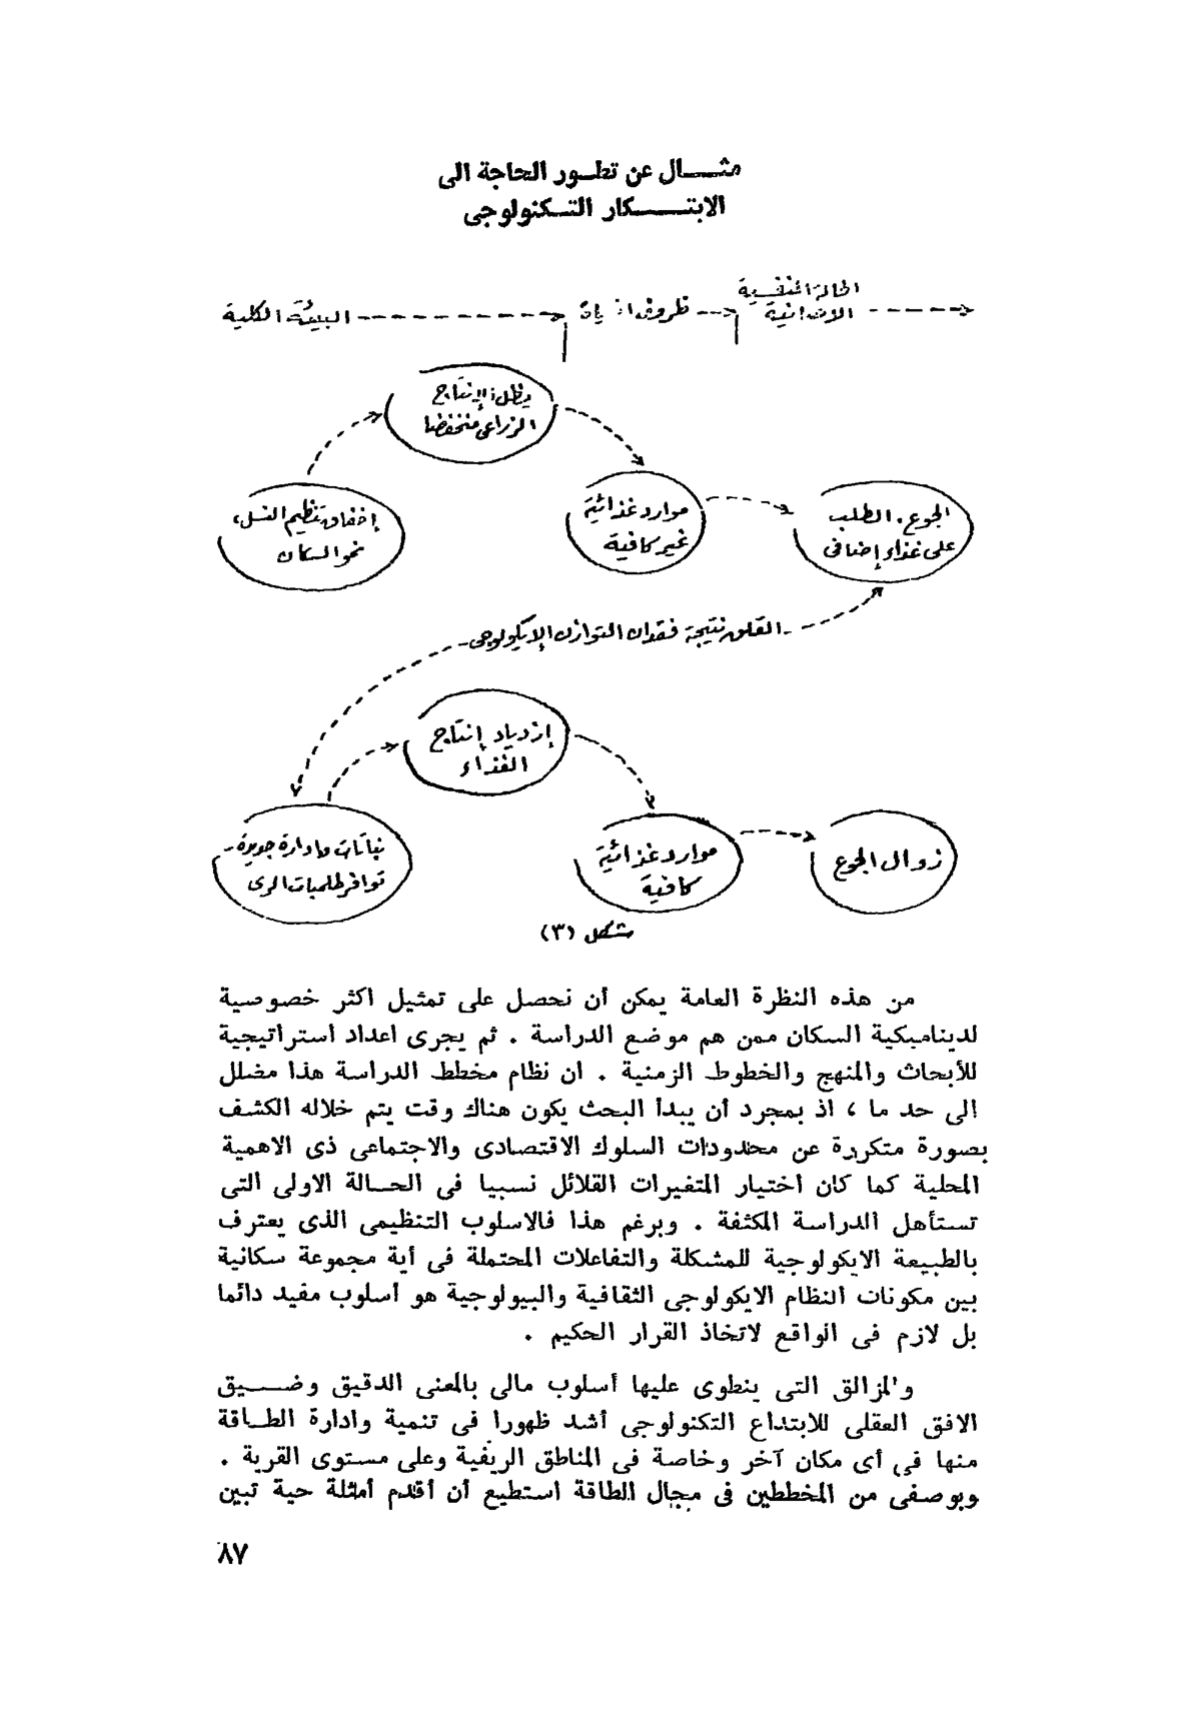 مثـــال عن تطـور الحاجة الى
الابتـــــكار التـكنولوجى
البيئة الكلية
ظروف
الحالة النفسية
يظل الإنتاج
الزراعى منخفضا
إخفاق تنظيم النسل،
نمو السكان
موارد غذائية
غير كافية
الجوع. الطلب
على غذاء إضافى
القلق نتيجة فقدان التوازن الإيكولوجى
إزدياد إنتاج
الغذاء
نباتات وإدارة جديدة
توافر طلمبات الرى
موارد غذائية
كافية
زوال الجوع
شكل (٣)
من هذه النظرة العامة يمكن أن نحصل على تمثيل اكثر خصوصية
لديناميكية السكان ممن هم موضع الدراسة . ثم يجرى اعداد استراتيجية
للأبحاث والمنهج والخطوط الزمنية . ان نظام مخطط الدراسة هذا مضلل
الى حد ما ، اذ بمجرد أن يبدأ البحث يكون هناك وقت يتم خلاله الكشف
بصورة متكررة عن محدودات السلوك الاقتصادى والاجتماعى ذى الاهمية
المحلية كما كان اختيار المتغيرات القلائل نسبيا فى الحـالة الاولى التى
تستأهل الدراسة المكثفة . وبرغم هذا فالاسلوب التنظيمى الذى يعترف
بالطبيعة الايكولوجية للمشكلة والتفاعلات المحتملة فى أية مجموعة سكانية
بين مكونات النظام الايكولوجى الثقافية والبيولوجية هو أسلوب مفيد دائما
بل لازم فى الواقع لاتخاذ القرار الحكيم .
والمزالق التى ينطوى عليها أسلوب مالى بالمعنى الدقيق وضـــيق
الافق العقلى للابتداع التكنولوجى أشد ظهورا فى تنمية وادارة الطـاقة
منها فى أى مكان آخر وخاصة فى المناطق الريفية وعلى مستوى القرية .
وبوصفى من المخططين فى مجال الطاقة استطيع أن أقدم أمثلة حية تبين
٨٧